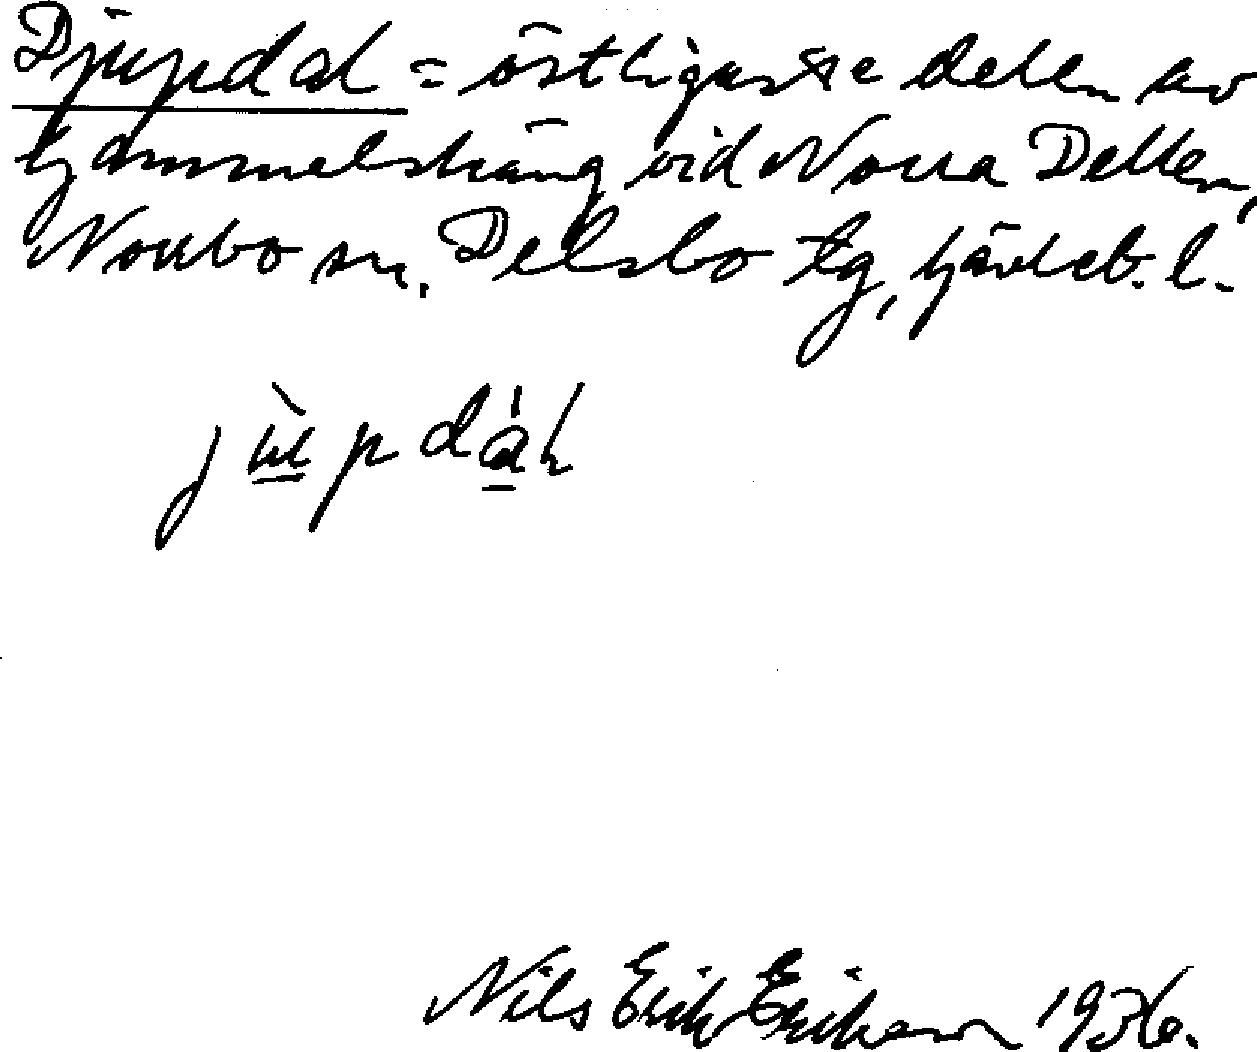 Djupdal = östligaste delen av
Gammelsträng vid Norra Dellen,
Norrbo sn, Delsbo tg, Gävleb. l.
jùpdáɫ
Nils Erik Erikson 1936.